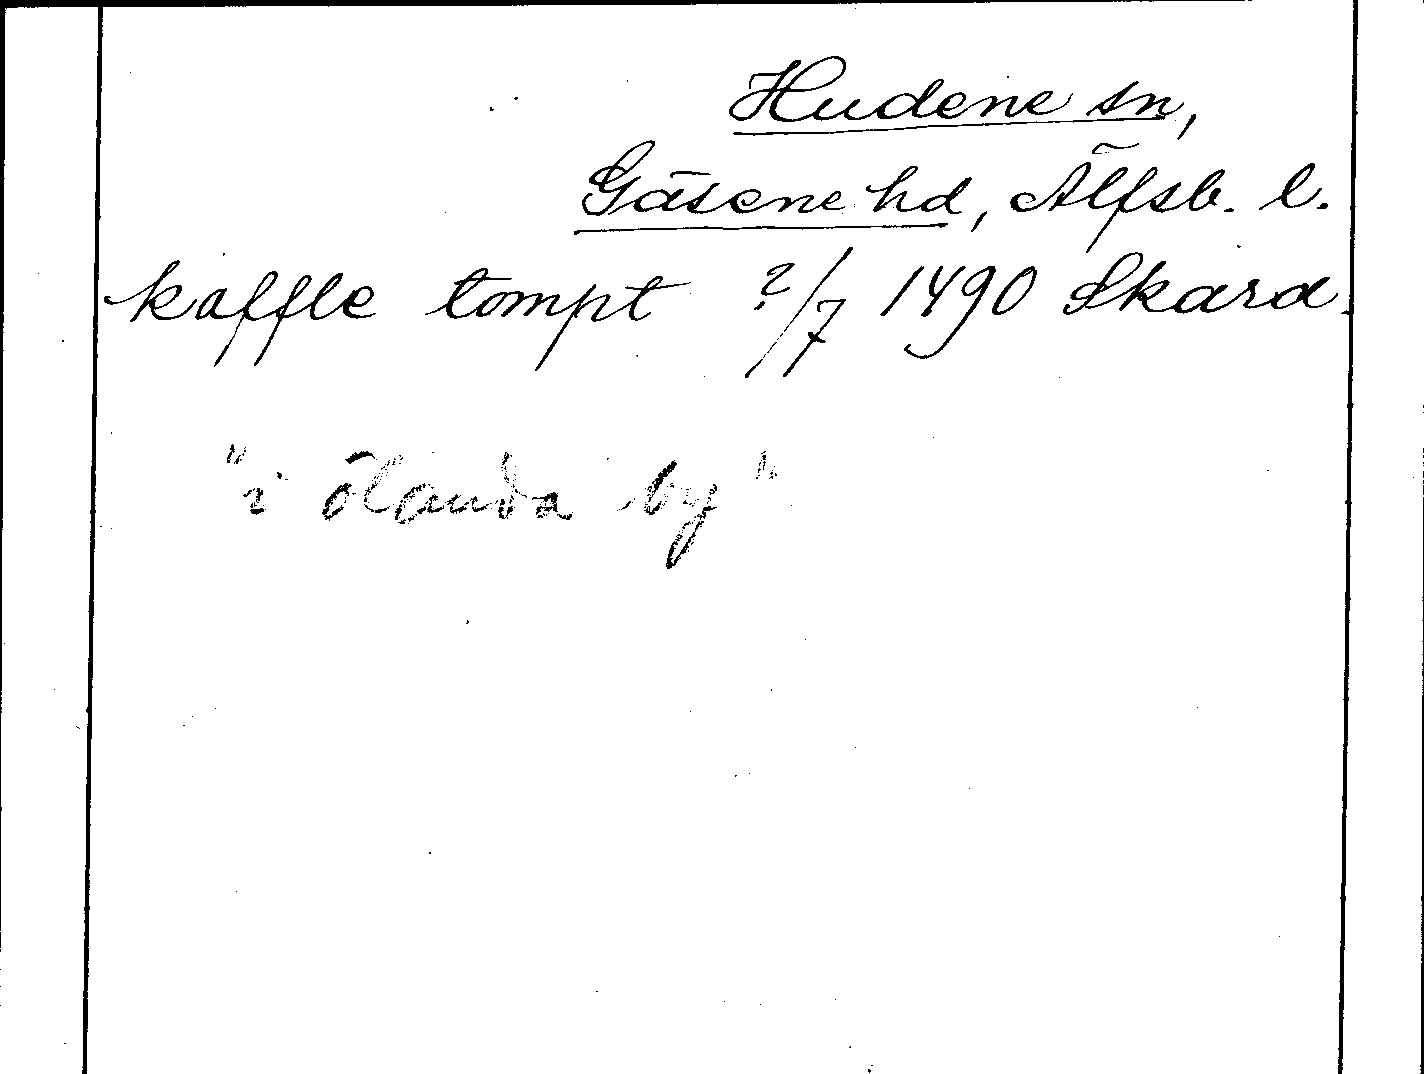 Hudene sn,
Gäsene hd, Älfsb. l.
kaffle tompt ?/7 1490 Skara
"i ölanda by"